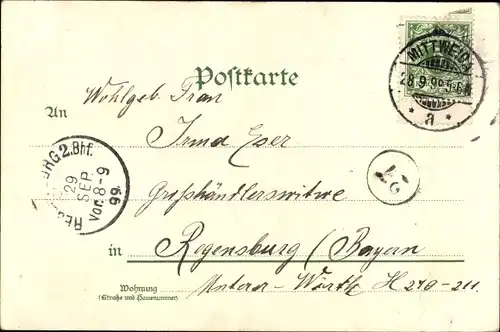 MITTWEIDA
28.9.99 5-6N
* a *
Postkarte
An Wohlgeb. Frau
Irma Eser
REGENSBURG 2.Bhf.
29
SEP
Vor. 8-9
99.
Großhändlerswitwe
in Regensburg (Bayern
Wohnung
(Straße und Hausnummer)
Unterer-Wörth H 210-211.